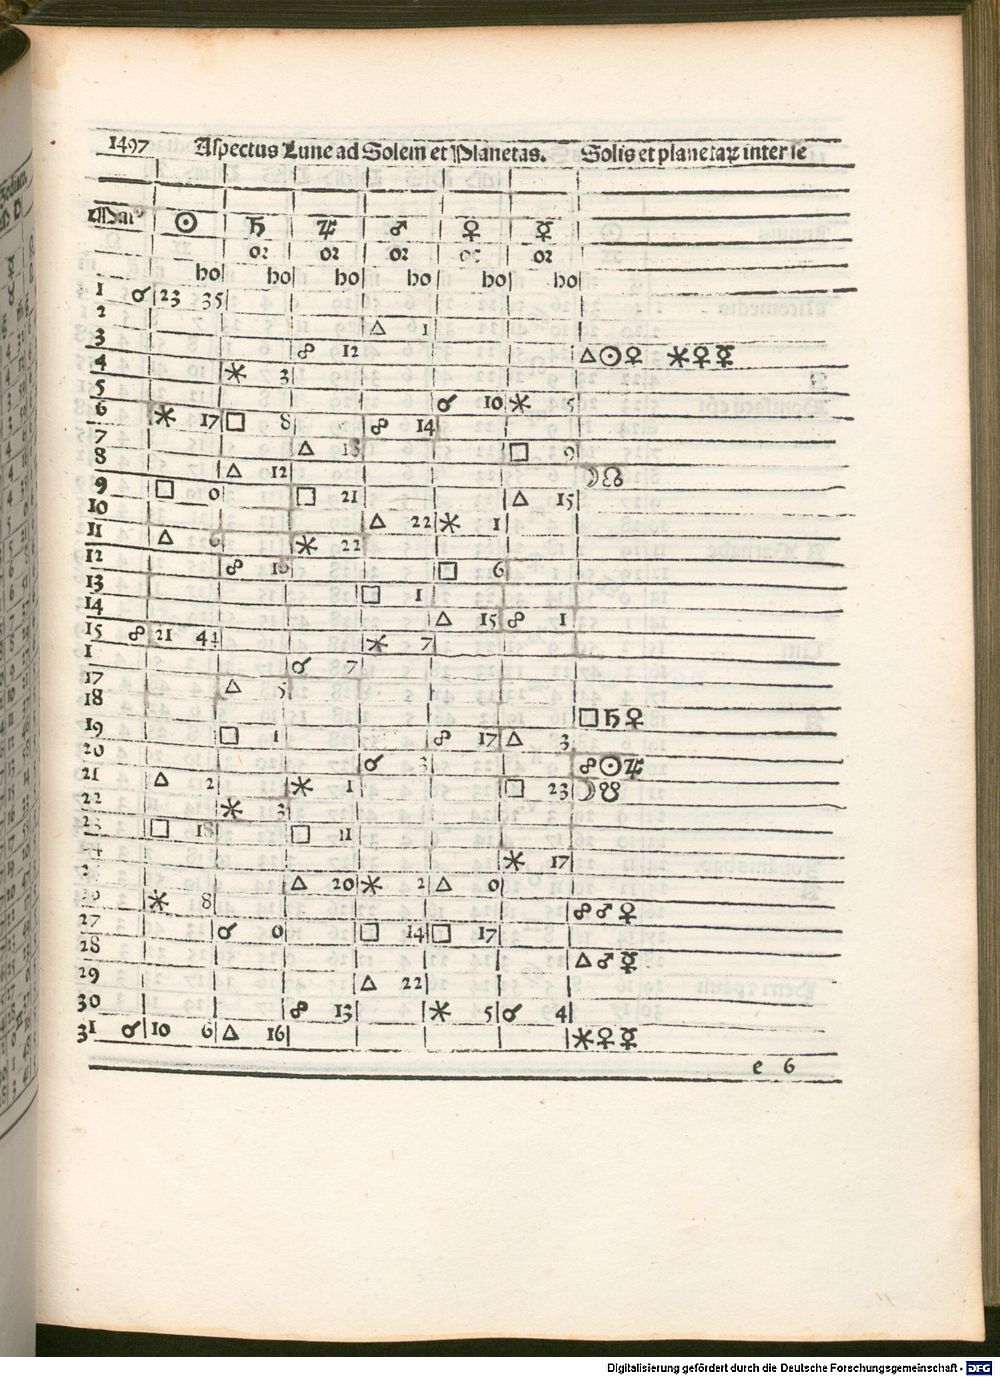 1497 Aſpectus Lune ad Solem et Planetas. Solis et planetaꝝ inter ſe
☉ ♄ ♃ ♂ ♀ ☿
oꝛ oꝛ oꝛ oꝛ
ho ho ho ho ho ho
1 ☌ 23 35
2 △ 1
3 ☍ 12 △☉♀ ⚹♀☿
4 ⚹ 3
5 ☌ 10 ⚹ 15
6 ⚹ 17 □ 8 ☍ 14
7 △ □ 9
8 △ 12 ☽☊
9 □ 0 □ 21 △ 15
10 △ 22 ⚹ 1
11 △ 6 ⚹ 22
12 ☍ □ 6
13 □ 1
14 △ 15 ☍ 1
15 ☍ 21 41 ⚹ 7
1 ☌ 7
17 △ 5
18 □♄♀
19 □ 1 ☍ 17 △ 3
20 ☌ 3 ☍☉♃
21 △ 2 ⚹ 1 □ 23 ☽☋
22 ⚹ 3
□ 18 □ 11
⚹ 17
△ 20 ⚹ 2 △ 0
⚹ 8 ☍♂♀
27 ☌ 0 □ 14 □ 17
28 △♂☿
29 △ 22
30 ☍ 13 ⚹ 5 ☌ 4
31 ☌ 10 6 △ 16 ⚹♀☿
e 6
Digitalisierung gefördert durch die Deutsche Forschungsgemeinschaft - DFG